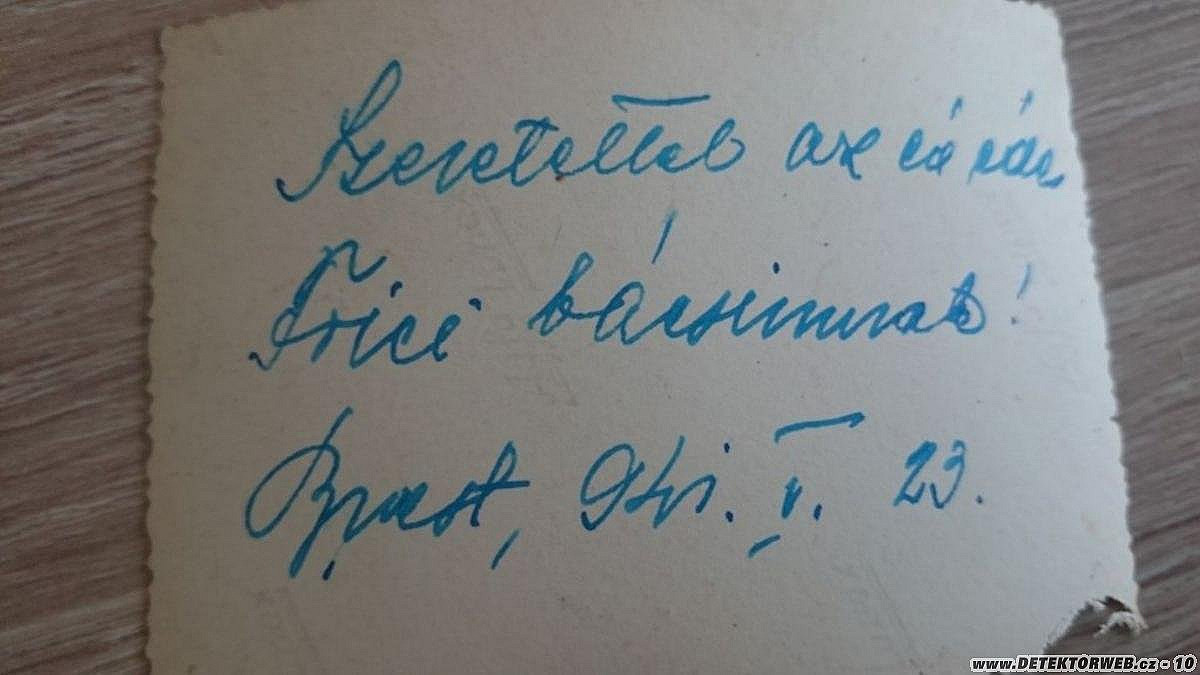 Szeretettel az én édes
Frici bácsimnak!
Bpest, 941. V. 23.
www.DETEKTORWEB.cz - 10